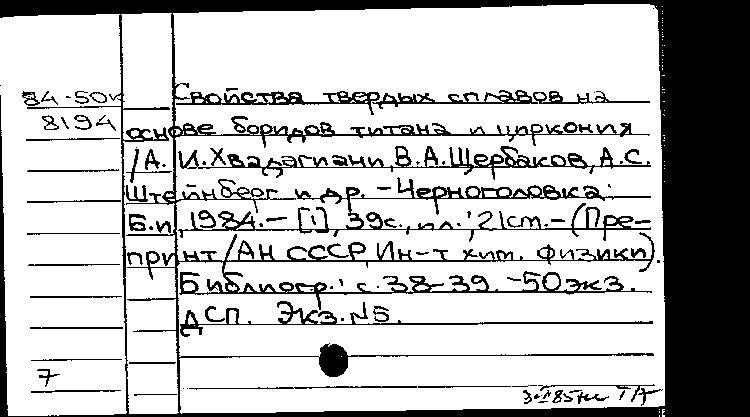 84-50к Свойства твердых сплавов на
8194 основе боридов титана и циркония
/А. И. Хвадагиани, В.А. Щербаков, А.С.
Штейнберг и др. - Черноголовка:
Б.и., 1984. - [1], 39с., ил.; 21cm. - (Пре-
принт / АН СССР, Ин-т хим. физики).
Библиогр.: с. 38-39. - 50 экз.
ДСП. Экз. №5.
7